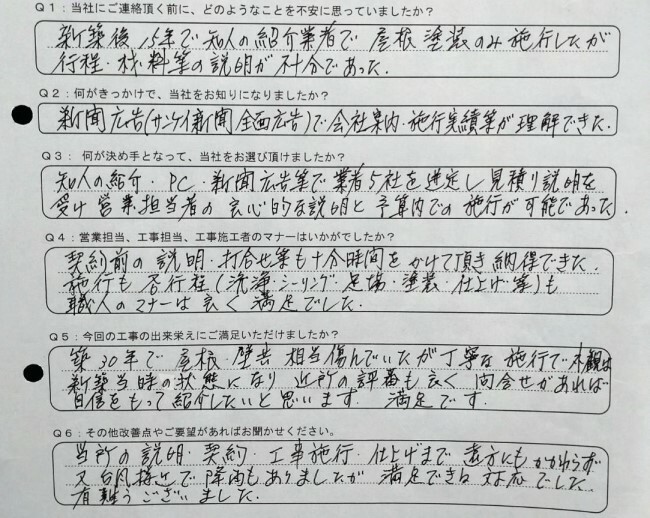 Q１：当社にご連絡頂く前に、どのようなことを不安に思っていましたか？
新築後15年で知人の紹介業者で屋根塗装のみ施行したが
行程・材料等の説明が不十分であった.
Q２：何がきっかけで、当社をお知りになりましたか？
新聞広告(サンケイ新聞全面広告)で会社案内・施行実績等が理解できた.
Q３： 何が決め手となって、当社をお選び頂けましたか？
知人の紹介・PC・新聞広告等で業者5社を選定し見積り説明を
受け営業担当者の良心的な説明と予算内での施行が可能であった.
Q４：営業担当、工事担当、工事施工者のマナーはいかがでしたか？
契約前の説明・打合せ等も十分時間をかけて頂き納得できた.
施行も各行程(洗浄・シーリング・足場・塗装・仕上げ等)も
職人のマナーは良く満足でした.
Q５：今回の工事の出来栄えにご満足いただけましたか？
築30年で屋根・壁共相当傷んでいたが丁寧な施行で外観は
新築当時の状態になり近所の評番も良く問合せがあれば
自信をもって紹介したいと思います. 満足です.
Q６：その他改善点やご要望があればお聞かせください。
当所の説明・契約・工事施行・仕上げまで遠方にもかかわらず
又台風接近で降雨もありましたが満足できる対応でした
有難うございました.